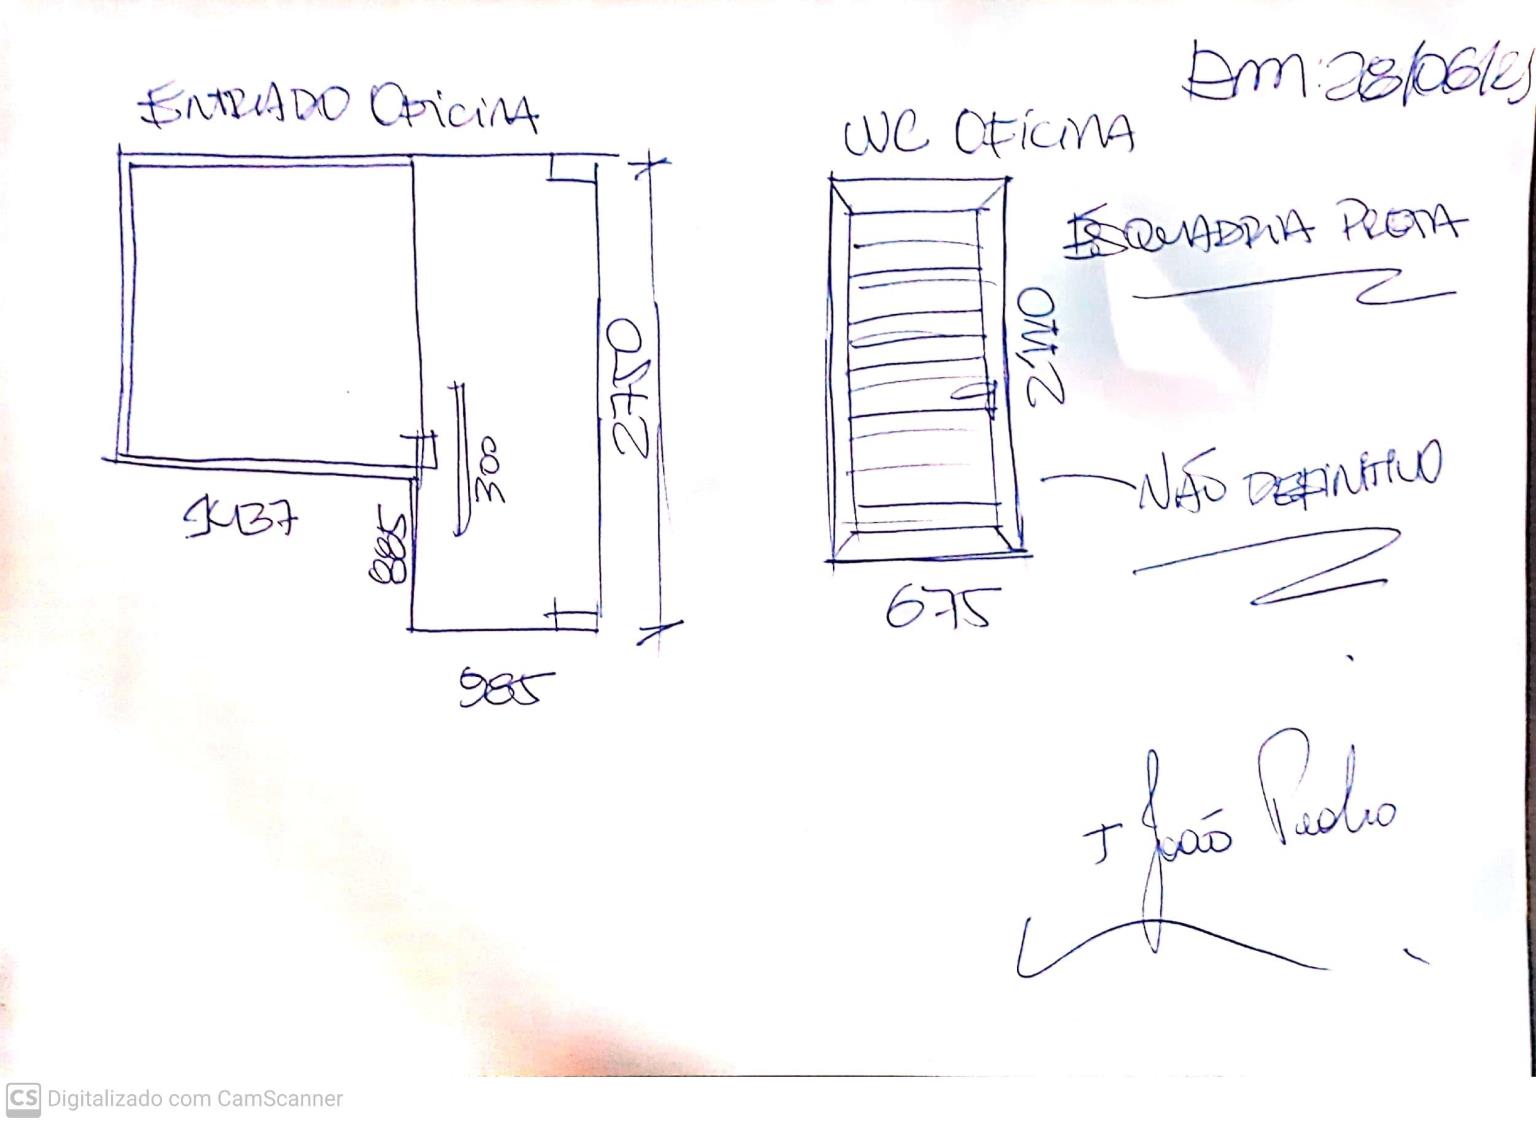 Em: 28/06/21
ENTRADO OFICINA
WC OFICINA
ESQUADRIA PRETA
2750
2110
300
NÃO DEFINITIVO
885
675
985
+ João Pedro
CS Digitalizado com CamScanner